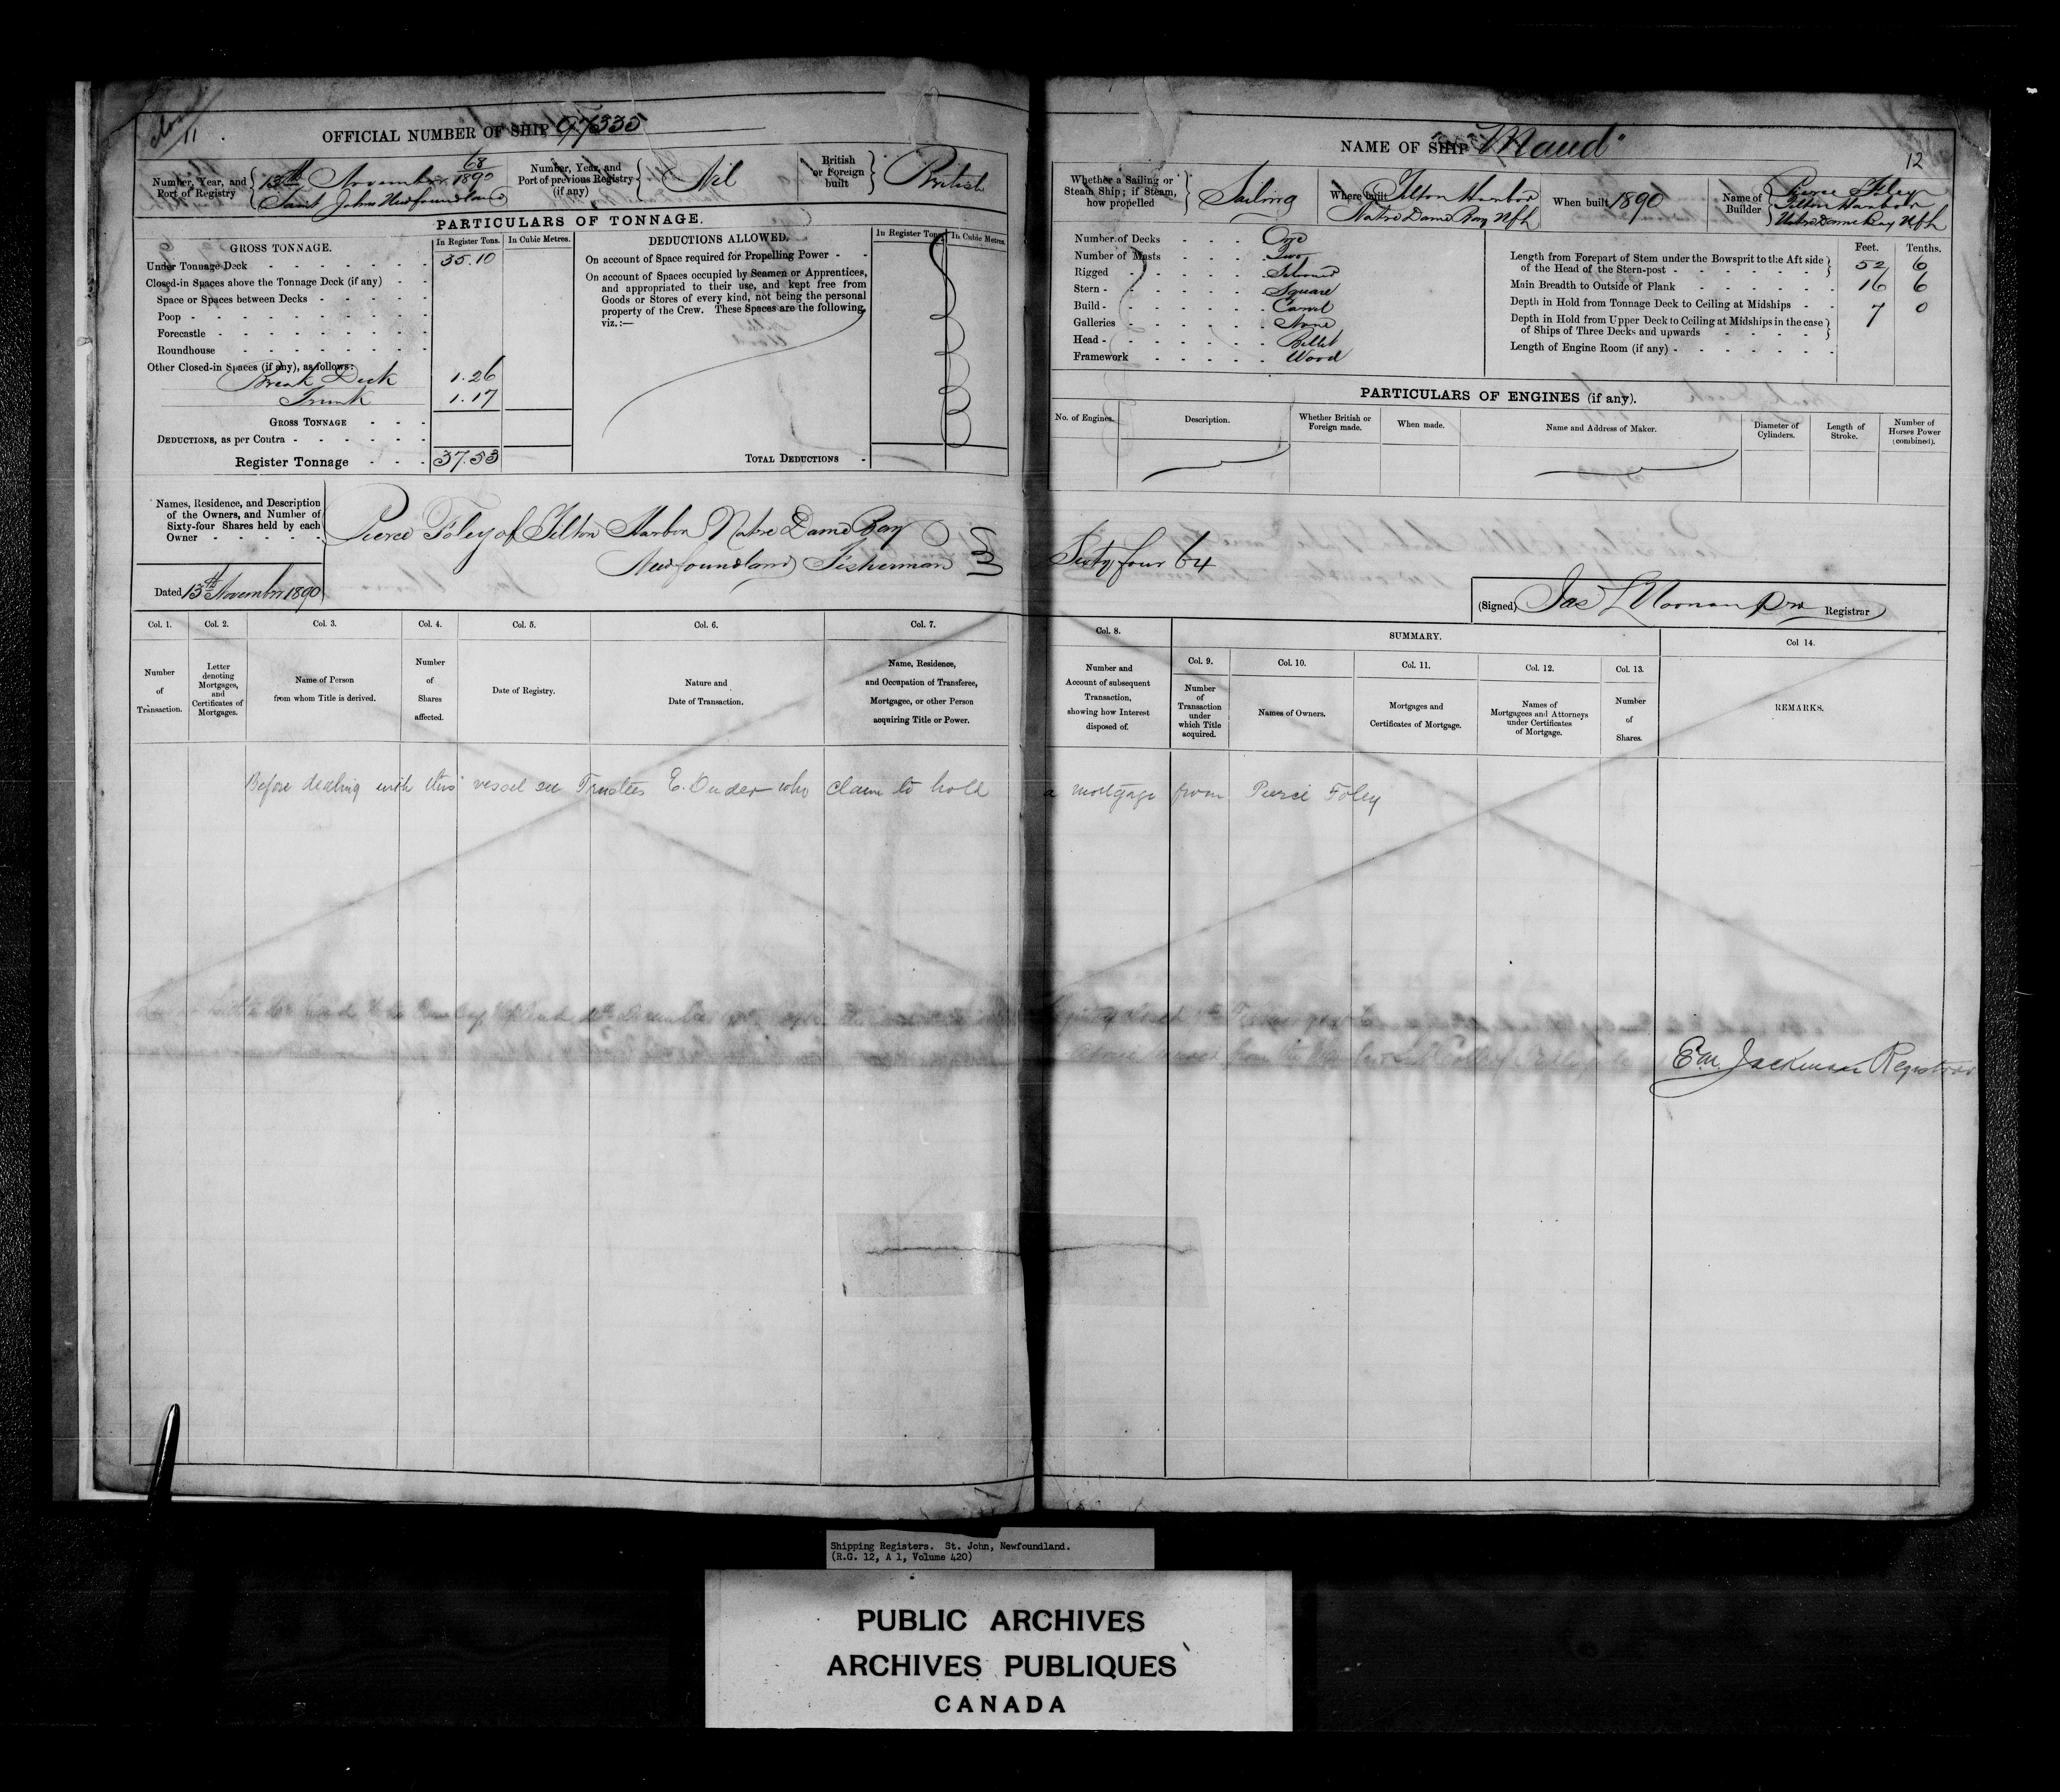 Closed
11
OFFICIAL NUMBER OF SHIP 97335
Number, Year, and Port of Registry
68/1890
13th November
Saint Johns Newfoundland
Number, Year, and Port of previous Registry (if any)
Nil
British or Foreign built
British
PARTICULARS OF TONNAGE.
GROSS TONNAGE.
In Register Tons. In Cubic Metres.
Under Tonnage Deck 35.10
Closed-in Spaces above the Tonnage Deck (if any)
Space or Spaces between Decks
Poop
Forecastle
Roundhouse
Other Closed-in Spaces (if any), as follows:
Break Deck 1.26
Trunk 1.17
GROSS TONNAGE
DEDUCTIONS, as per Contra
Register Tonnage 37.53
DEDUCTIONS ALLOWED.
In Register Tons. In Cubic Metres.
On account of Space required for Propelling Power
On account of Spaces occupied by Seamen or Apprentices,
and appropriated to their use, and kept free from
Goods or Stores of every kind, not being the personal
property of the Crew. These Spaces are the following,
viz.:—
TOTAL DEDUCTIONS
Names, Residence, and Description
of the Owners, and Number of
Sixty-four Shares held by each
Owner
Pierce Foley of Tilton Harbor Notre Dame Bay
Newfoundland Fisherman
Dated 13th November 1890
Col. 1. Col. 2. Col. 3. Col. 4. Col. 5. Col. 6. Col. 7.
Number of Transaction.
Letter denoting Mortgages, and Certificates of Mortgages.
Name of Person from whom Title is derived.
Number of Shares affected.
Date of Registry.
Nature and Date of Transaction.
Name, Residence, and Occupation of Transferee, Mortgagee, or other Person acquiring Title or Power.
NAME OF SHIP "Maud"
12
Whether a Sailing or Steam Ship; if Steam, how propelled
Sailing
Where built
Tilton Harbor
Notre Dame Bay Nfld
When built 1890
Name of Builder
Pierce Foley
Tilton Harbor
Notre Dame Bay Nfld
Number of Decks One
Number of Masts Two
Rigged Schooner
Stern Square
Build Carvel
Galleries None
Head Billet
Framework Wood
Feet. Tenths.
Length from Forepart of Stem under the Bowsprit to the Aft side of the Head of the Stern-post 52 6
Main Breadth to Outside of Plank 16 6
Depth in Hold from Tonnage Deck to Ceiling at Midships 7 0
Depth in Hold from Upper Deck to Ceiling at Midships in the case of Ships of Three Decks and upwards
Length of Engine Room (if any)
PARTICULARS OF ENGINES (if any).
No. of Engines.
Description.
Whether British or Foreign made.
When made.
Name and Address of Maker.
Diameter of Cylinders.
Length of Stroke.
Number of Horses Power (combined).
Sixty four 64
(Signed) Jas L Noonan Pro Registrar
Col. 8. SUMMARY. Col 14.
Col. 9. Col. 10. Col. 11. Col. 12. Col. 13.
Number and Account of subsequent Transaction, showing how Interest disposed of.
Number of Transaction under which Title acquired.
Names of Owners.
Mortgages and Certificates of Mortgage.
Names of Mortgagees and Attorneys under Certificates of Mortgage.
Number of Shares.
REMARKS.
Before dealing with this vessel see Trustees E. Duder who claim to hold a mortgage from Pierce Foley
E.M. Jackman Registrar
Shipping Registers. St. John, Newfoundland.
(R.G. 12, A 1, Volume 420)
PUBLIC ARCHIVES
ARCHIVES PUBLIQUES
CANADA